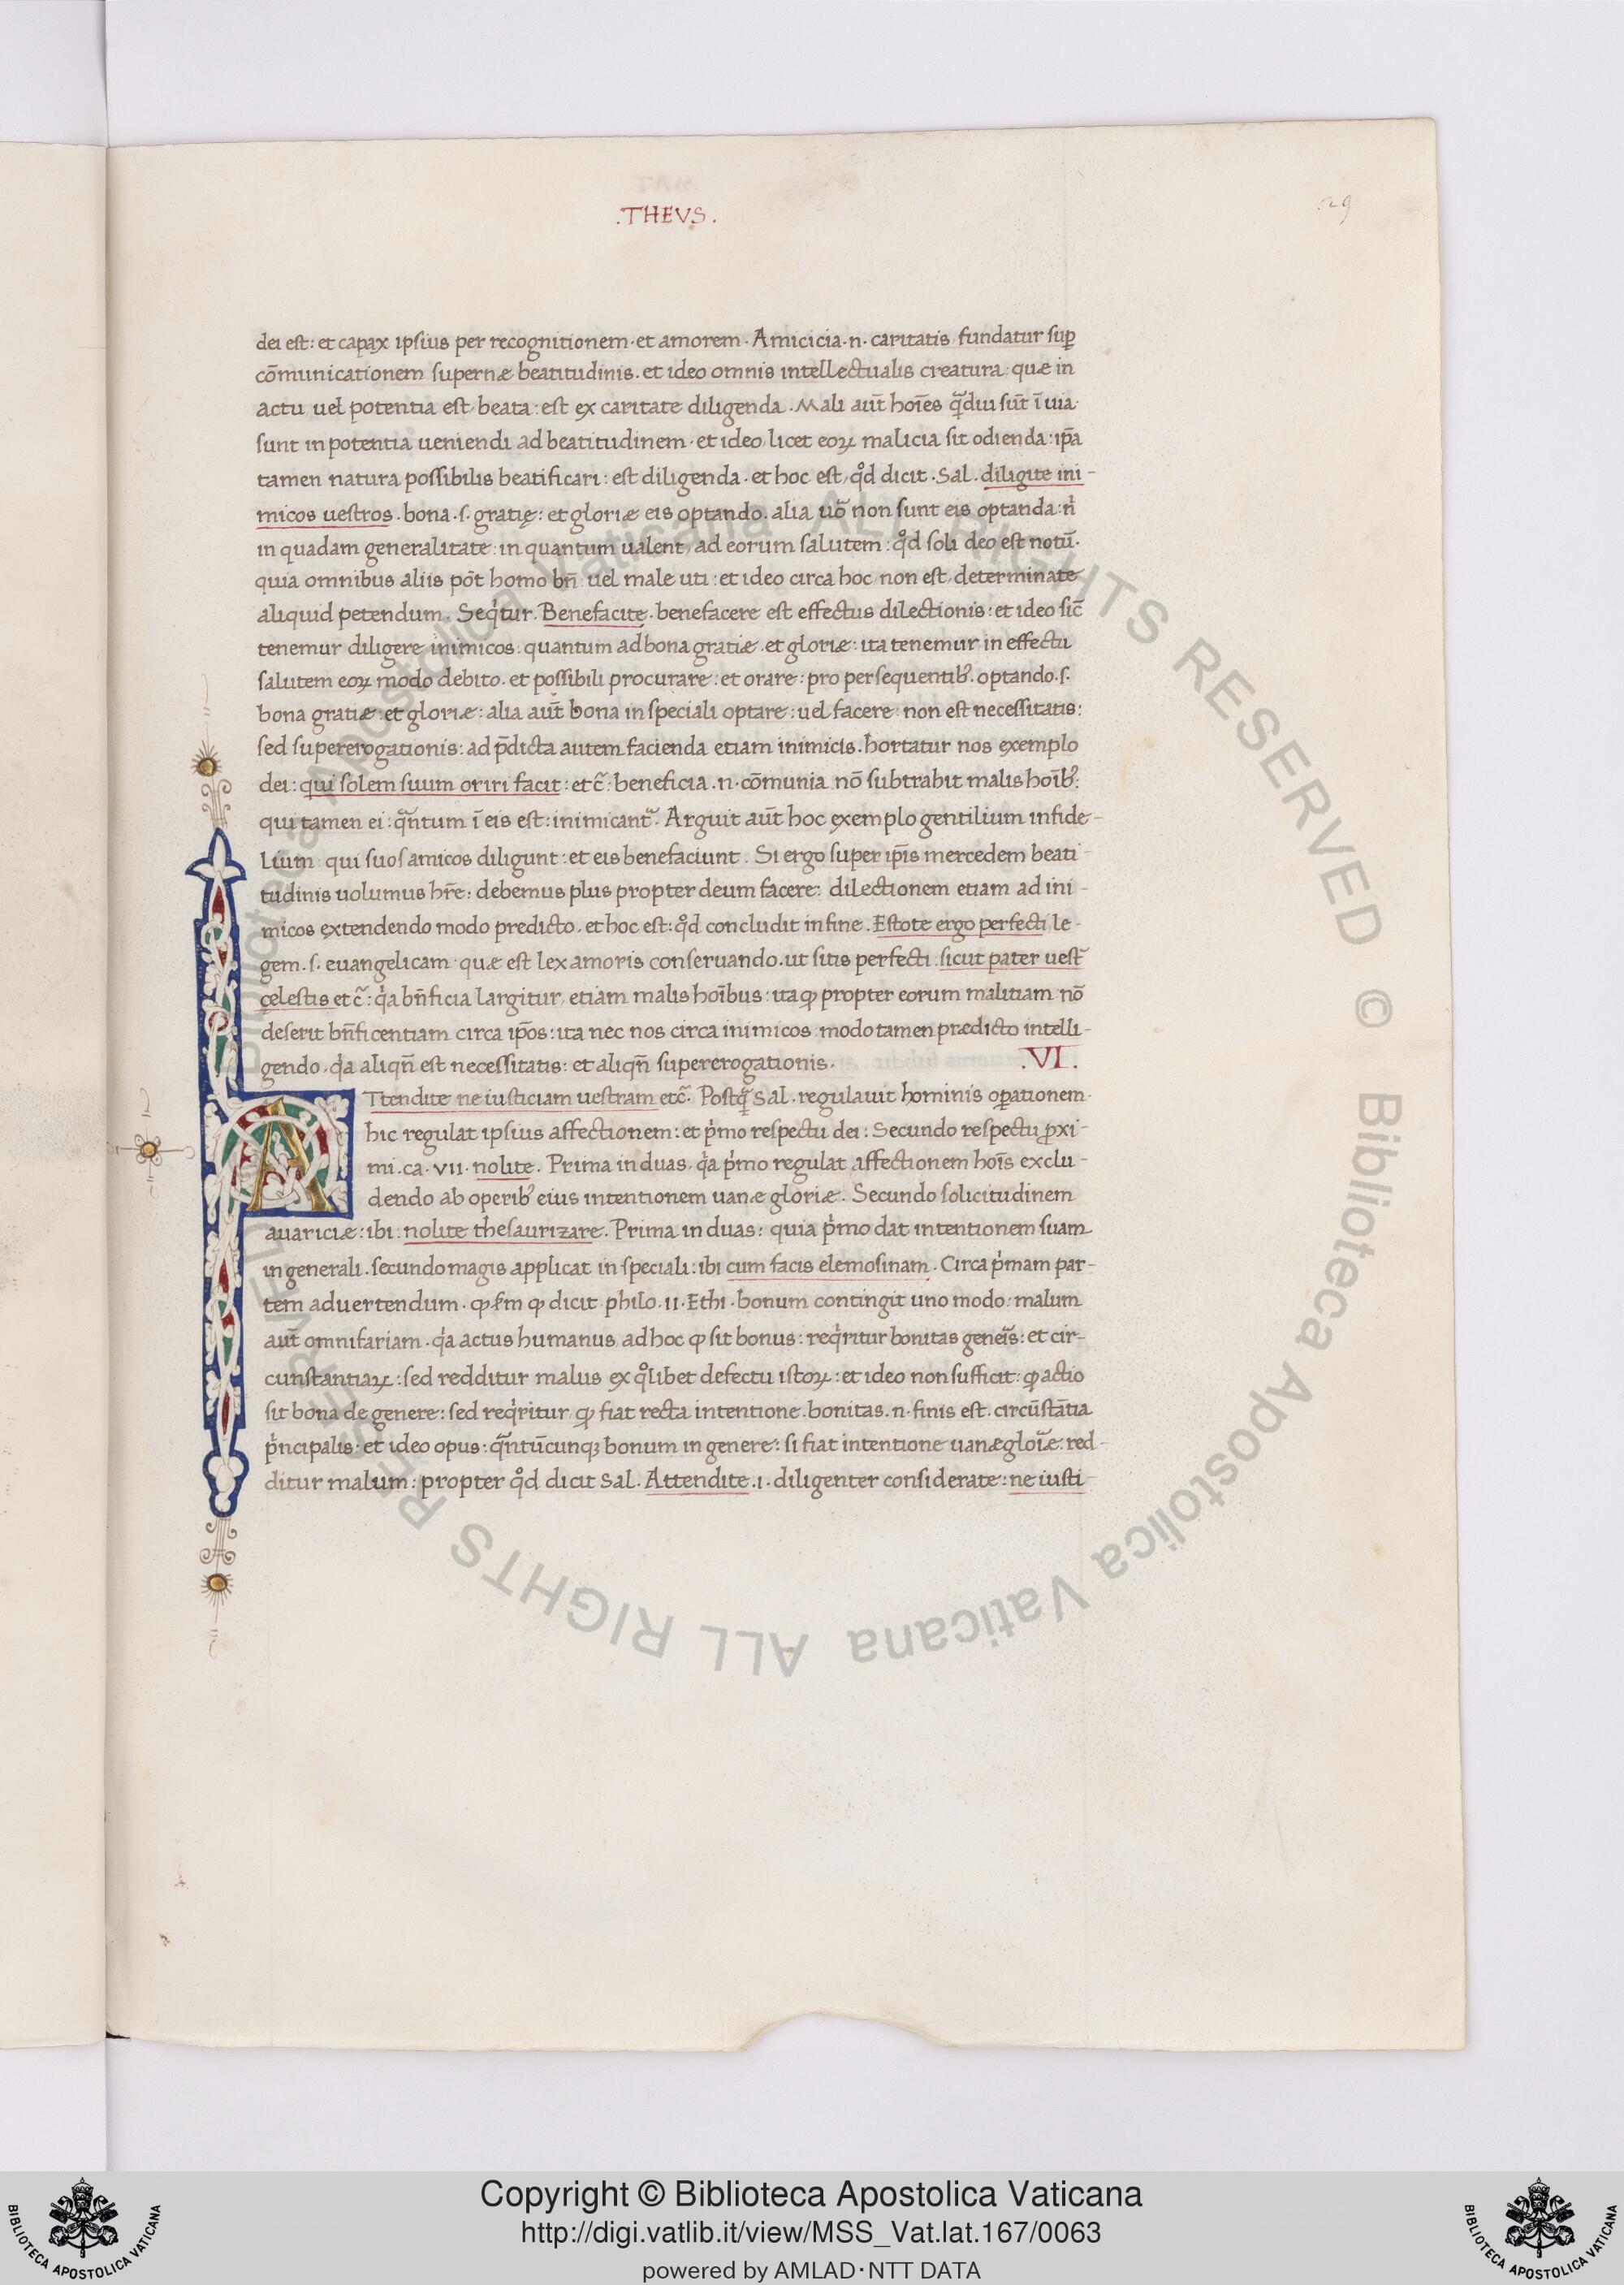 .THEVS.
29
dei est: et capax ipsius per recognitionem. et amorem. Amicicia .n. caritatis fundatur sup̱
cōmunicationem supernæ beatitudinis. et ideo omnis intellectualis creatura: quæ in
actu uel potentia est beata: est ex caritate diligenda. Mali aut̄ hoīes q̄diu sūt ī uia.
sunt in potentia ueniendi ad beatitudinem. et ideo licet eoꝝ malicia sit odienda: ip̄a
tamen natura possibilis beatificari: est diligenda. et hoc est qͦd dicit. Sal. diligite ini-
micos uestros. bona .s. gratię: et gloriæ eis optando. alia uͦo non sunt eis optanda: nͥ
in quadam generalitate: in quantum ualent, ad eorum salutem: qͦd soli deo est notū.
quia omnibus aliis pōt homo bn̄ uel male uti: et ideo circa hoc non est determinate
aliquid petendum. Seqͥtur. Benefacite. benefacere est effectus dilectionis: et ideo sic̄
tenemur diligere inimicos. quantum ad bona gratiæ. et gloriæ: ita tenemur in effectu
salutem eoꝝ modo debito. et possibili procurare: et orare: pro persequentibꝰ. optando .s.
bona gratiæ: et gloriæ: alia aut̄ bona in speciali optare: uel facere: non est necessitatis:
sed supererogationis: ad p̄dicta autem facienda etiam inimicis. hortatur nos exemplo
dei: qui solem suum oriri facit: etc̄: beneficia .n. cōmunia nō subtrahit malis hoībꝰ:
qui tamen ei: qᷓntum ī eis est: inimicantᷣ. Arguit aut̄ hoc exemplo gentilium infide-
lium: qui suos amicos diligunt: et eis benefaciunt. Si ergo super ip̄is mercedem beati-
tudinis uolumus hr̄e: debemus plus propter deum facere: dilectionem etiam ad ini-
micos extendendo modo predicto. et hoc est: qͦd concludit in fine. Estote ergo perfecti, le-
gem .s. euangelicam quæ est lex amoris conseruando. ut sitis perfecti: sicut pater uest̄
cęlestis etc̄: qͥa bn̄ficia largitur, etiam malis hoībus: ita ꝙ propter eorum malitiam nō
deserit bn̄ficentiam circa ip̄os: ita nec nos circa inimicos: modo tamen prædicto intelli-
gendo. qͥa aliqn̄ est necessitatis: et aliqn̄ supererogationis.
.VI.
ATtendite ne iusticiam uestram etc̄. Postqᷓ Sal. regulauit hominis oꝑationem.
hic regulat ipsius affectionem: et pͥmo respectu dei: Secundo respectu ꝓxi-
mi. ca. VII. nolite. Prima in duas. qͥa pͥmo regulat affectionem hoīs exclu-
dendo ab operibꝰ eius intentionem uanæ gloriæ. Secundo solicitudinem
auariciæ: ibi: nolite thesaurizare. Prima in duas: quia pͥmo dat intentionem suam
in generali. secundo magis applicat in speciali: ibi cum facis elemosinam. Circa pͥmam par-
tem aduertendum. ꝙ ẜm ꝙ dicit philo. II. Ethi. bonum contingit uno modo: malum
aut̄ omnifariam. qͥa actus humanus ad hoc ꝙ sit bonus: reqͥritur bonitas geneīs: et cir-
cunstantiaꝝ: sed redditur malus ex qͦlibet defectu istoꝝ: et ideo non sufficit: ꝙ actio
sit bona de genere: sed reqͥritur ꝙ fiat recta intentione. bonitas .n. finis est. circūstātia
pͥncipalis: et ideo opus: qᷓntūcunqꝫ bonum in genere: si fiat intentione uanæ gloīæ: red-
ditur malum: propter qͦd dicit Sal. Attendite .i. diligenter considerate: ne iusti-
© Biblioteca Apostolica Vaticana ALL RIGHTS RESERVED
Copyright © Biblioteca Apostolica Vaticana
http://digi.vatlib.it/view/MSS_Vat.lat.167/0063
powered by AMLAD·NTT DATA
BIBLIOTECA APOSTOLICA VATICANA
BIBLIOTECA APOSTOLICA VATICANA